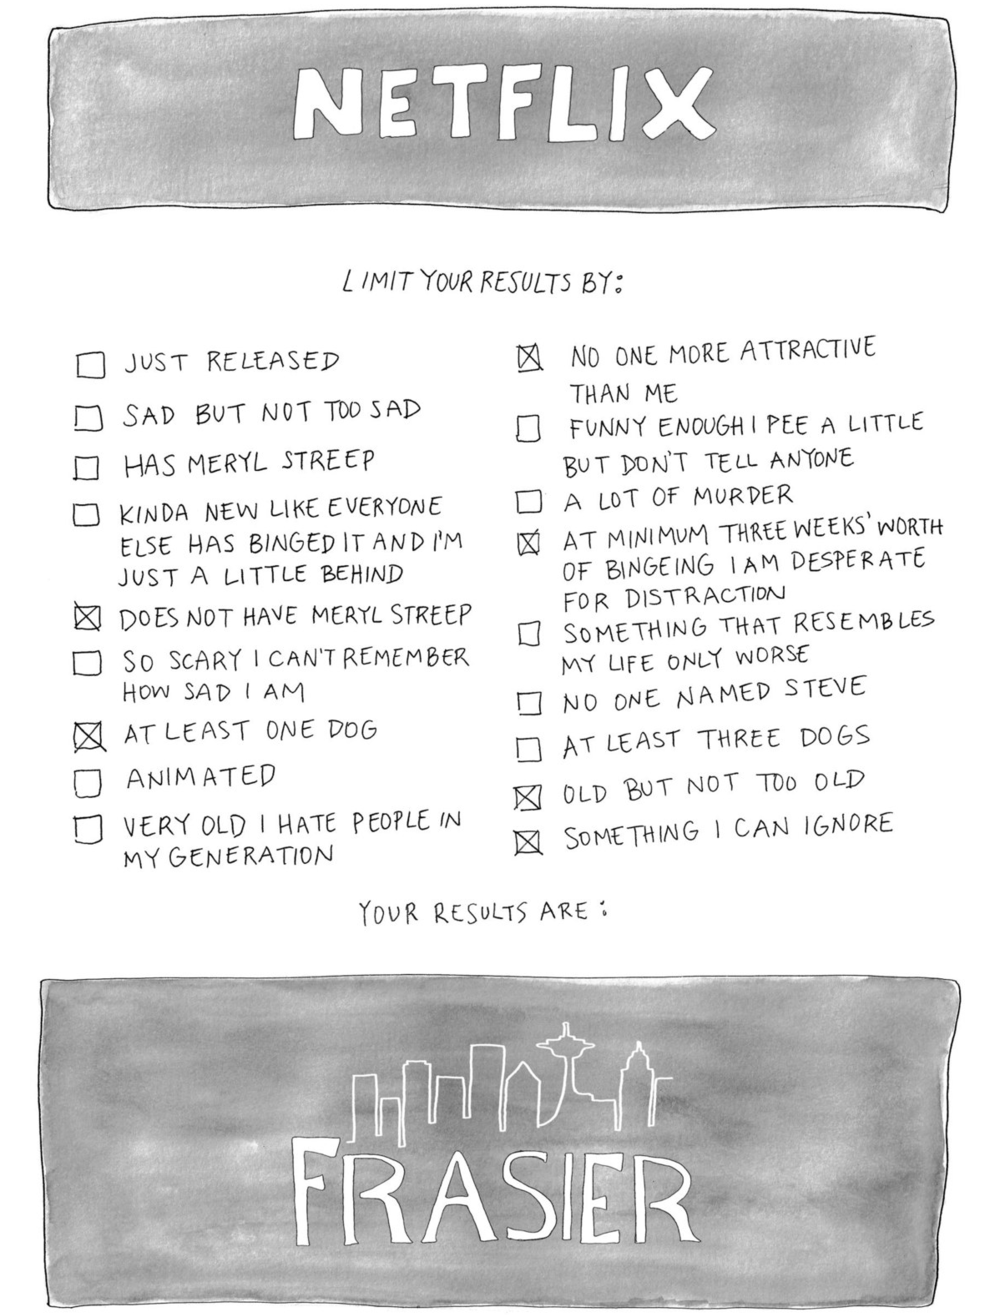 NETFLIX
LIMIT YOUR RESULTS BY:
JUST RELEASED
SAD BUT NOT TOO SAD
HAS MERYL STREEP
KINDA NEW LIKE EVERYONE
ELSE HAS BINGED IT AND I'M
JUST A LITTLE BEHIND
DOES NOT HAVE MERYL STREEP
SO SCARY I CAN'T REMEMBER
HOW SAD I AM
AT LEAST ONE DOG
ANIMATED
VERY OLD I HATE PEOPLE IN
MY GENERATION
NO ONE MORE ATTRACTIVE
THAN ME
FUNNY ENOUGH I PEE A LITTLE
BUT DON'T TELL ANYONE
A LOT OF MURDER
AT MINIMUM THREE WEEKS' WORTH
OF BINGEING I AM DESPERATE
FOR DISTRACTION
SOMETHING THAT RESEMBLES
MY LIFE ONLY WORSE
NO ONE NAMED STEVE
AT LEAST THREE DOGS
OLD BUT NOT TOO OLD
SOMETHING I CAN IGNORE
YOUR RESULTS ARE:
FRASIER